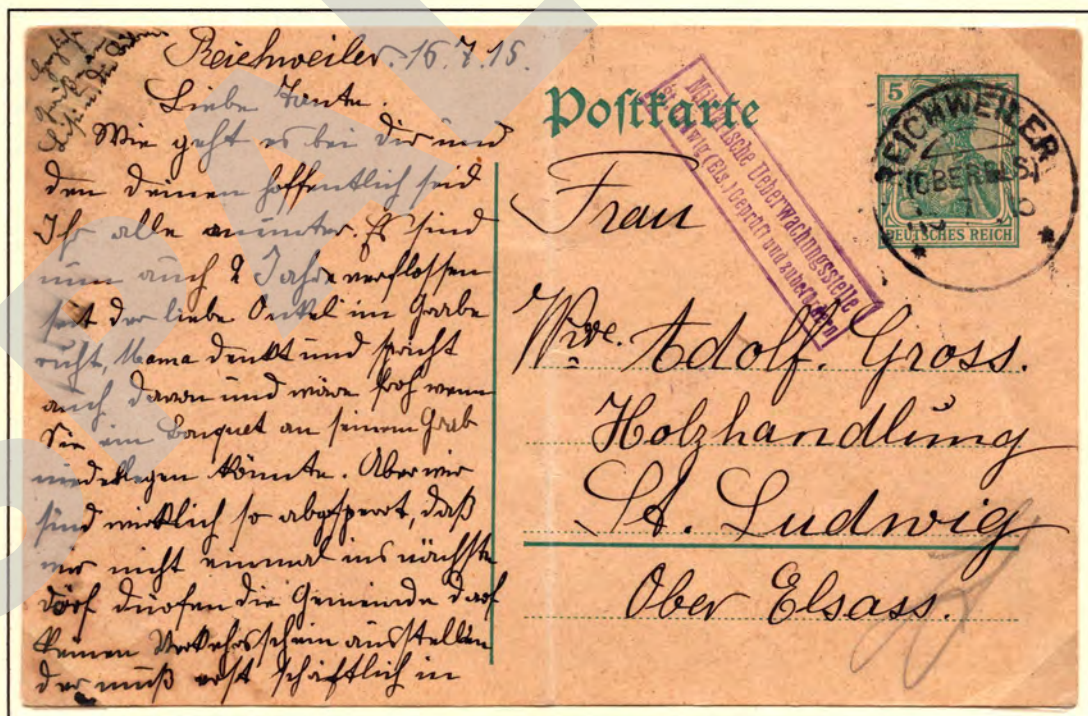 Reichweiler. 16.7.15.
Liebe Tante.
Wie geht es bei dir und
den deinen hoffentlich seid
Ihr alle munter. Es sind
nun auch 2 Jahre verflossen
seit der liebe Onkel im Grabe
ruht, Mama denkt und spricht
auch davon und wäre froh wenn
Sie ein Bouquet an seinem Grab
niederlegen könnte. Aber wir
sind wirklich so abgesperrt, daß
wir nicht einmal ins nächste
Dorf dürfen die Gemeinde darf
keinen Verkehrsschein ausstellen
der muß erst schriftlich in
Postkarte
5
DEUTSCHES REICH
REICHWEILER
(OBERELS)
Militärische Ueberwachungsstelle
St. Ludwig (Els.) Geprüft und zu befördern
Frau
Wwe. Adolf. Gross.
Holzhandlung
St. Ludwig
Ober Elsass.